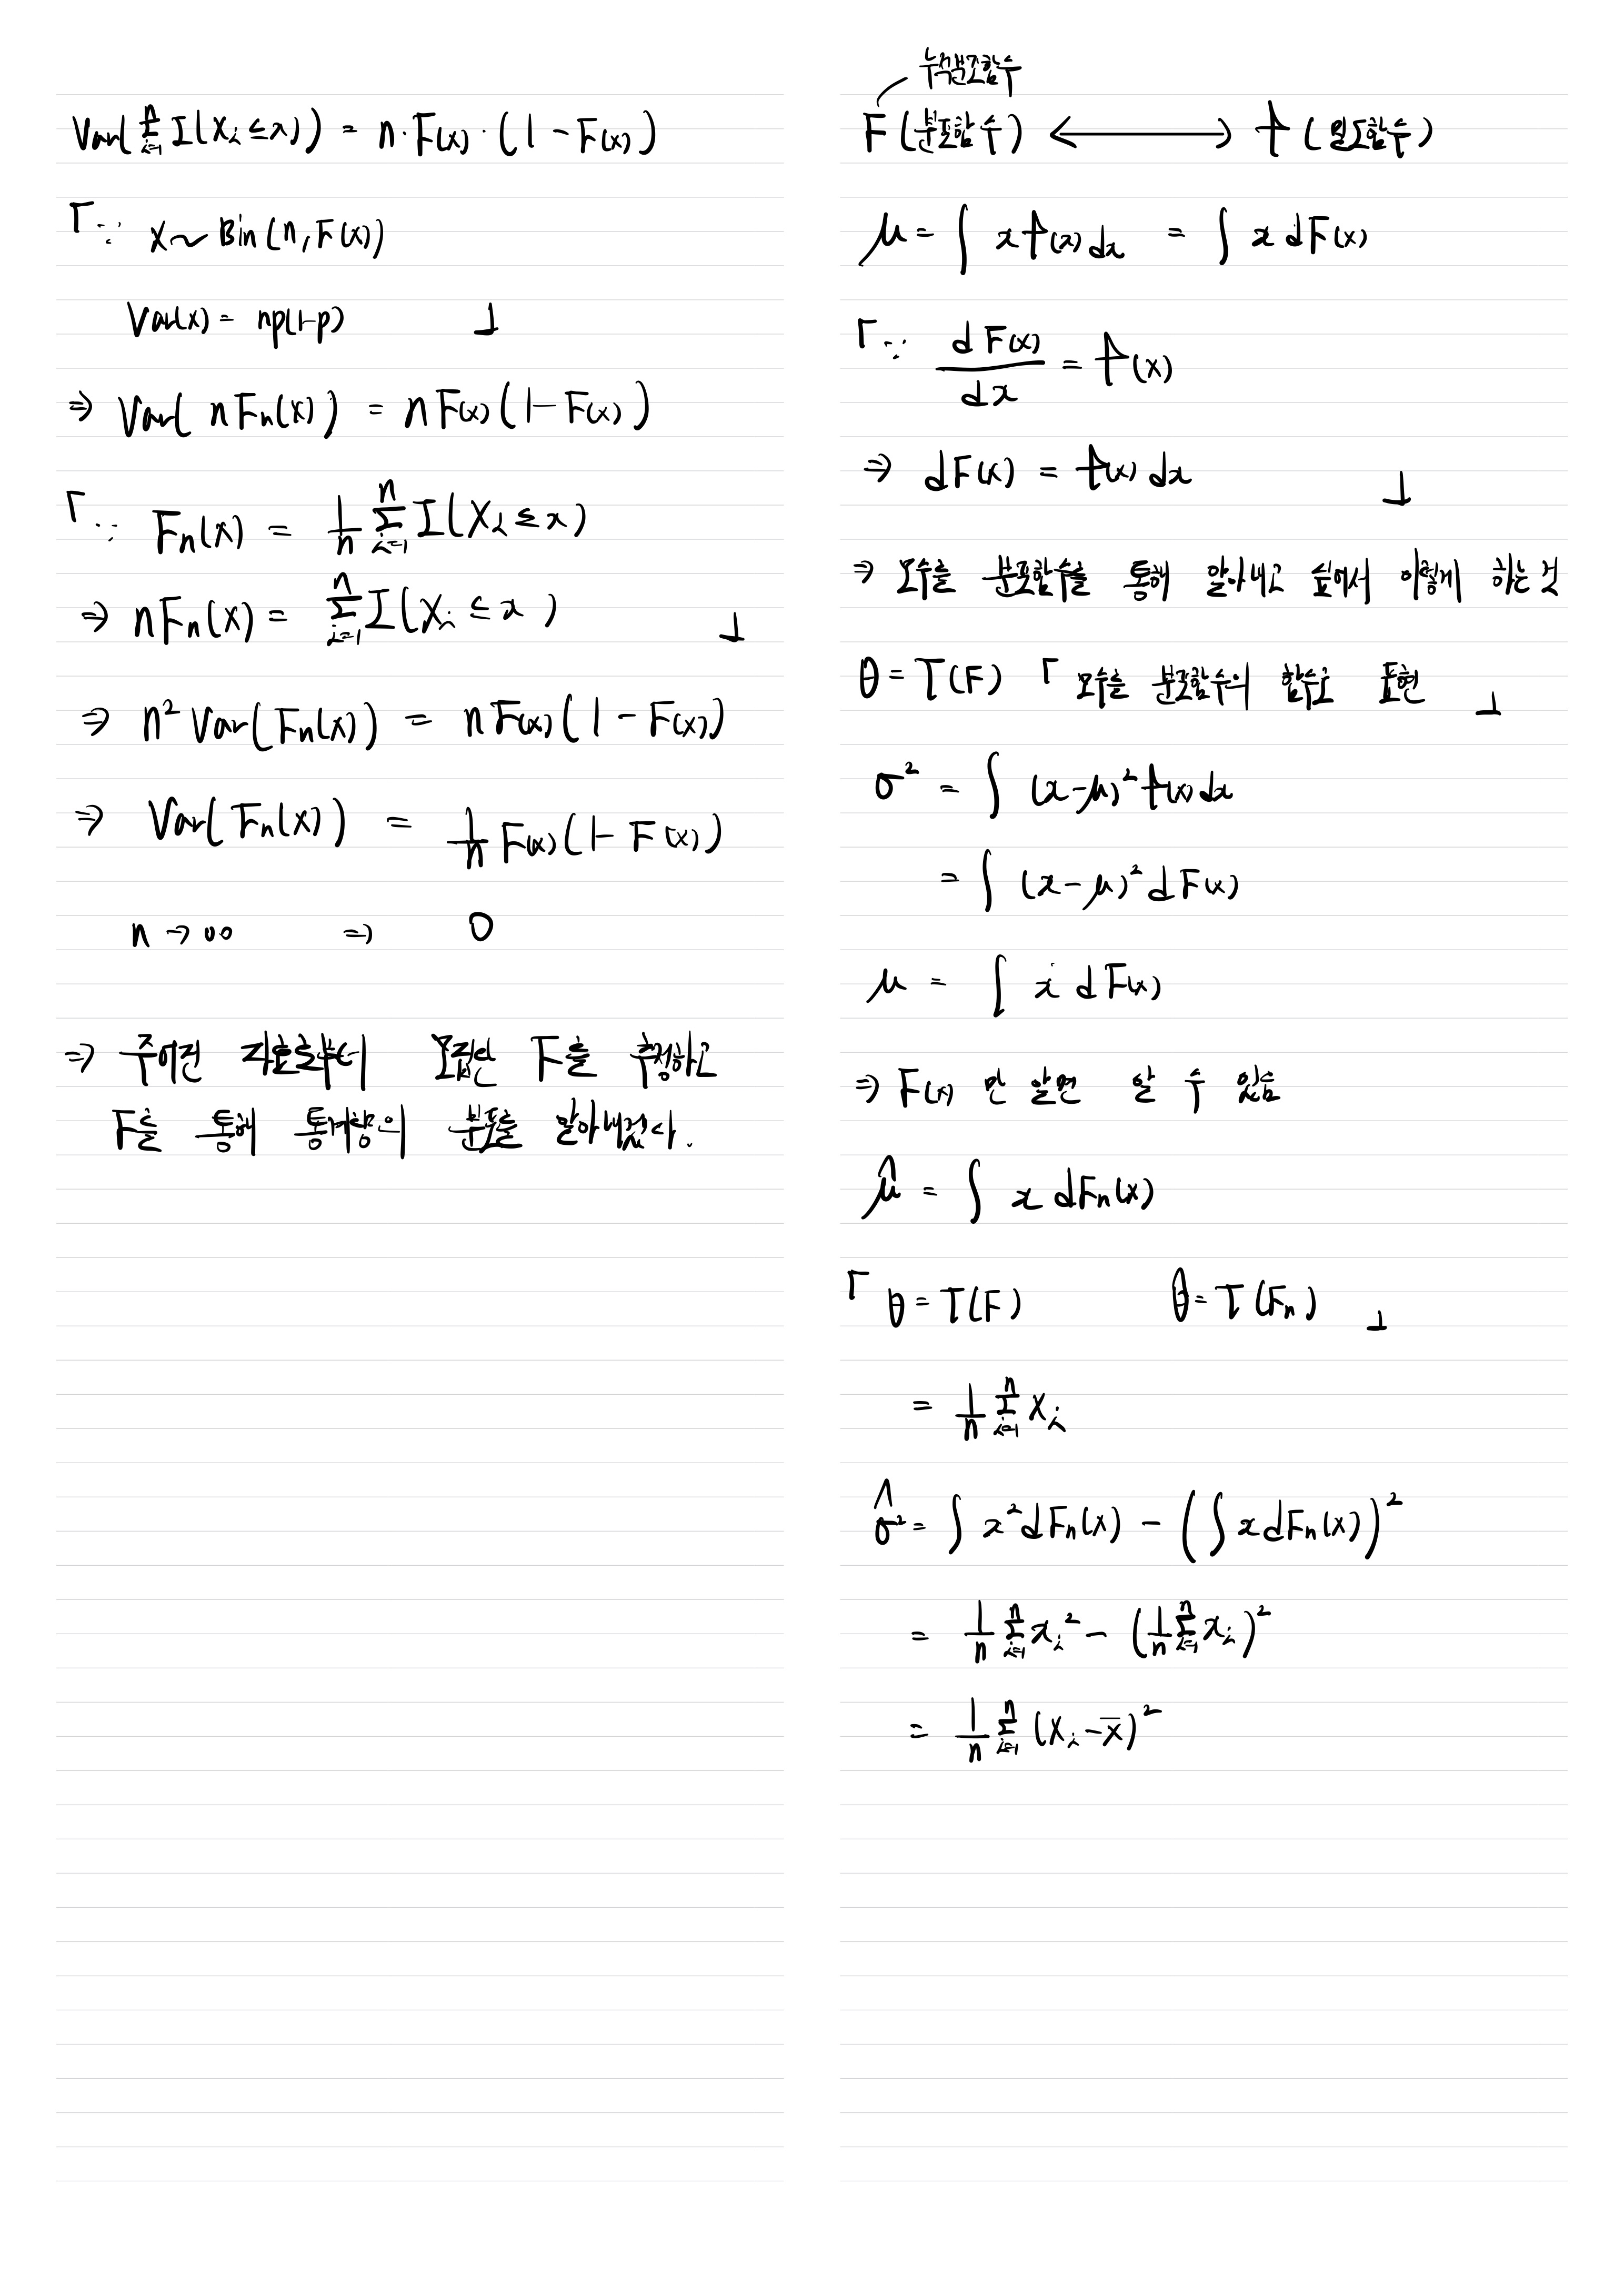 Var(Σ_{i=1}^{n} I(X_i ≤ x)) = n·F(x)·(1 - F(x))
「∵ X ~ Bin(n, F(x))
Var(x) = np(1-p) 」
⇒ Var(nFn(x)) = nF(x)(1 - F(x))
「∵ Fn(x) = 1/n Σ_{i=1}^{n} I(X_i ≤ x)
⇒ nFn(x) = Σ_{i=1}^{n} I(X_i ≤ x) 」
⇒ n² Var(Fn(x)) = nF(x)(1 - F(x))
⇒ Var(Fn(x)) = 1/n F(x)(1 - F(x))
n → ∞ ⇒ 0
⇒ 주어진 자료로부터 모집단 F를 추정하고
F를 통해 통계량의 분포를 알아내겠다.
누적분포함수
F (분포함수) ⟷ f (밀도함수)
μ = ∫ x f(x) dx = ∫ x dF(x)
「∵ dF(x)/dx = f(x)
⇒ dF(x) = f(x) dx 」
⇒ 모수를 분포함수를 통해 알아내고 싶에서 이렇게 하는 것
θ = T(F) 「 모수를 분포함수의 함수로 표현 」
σ² = ∫ (x-μ)² f(x) dx
= ∫ (x-μ)² dF(x)
μ = ∫ x dF(x)
⇒ F(x) 만 알면 알 수 있음
μ̂ = ∫ x dFn(x)
「 θ = T(F) θ̂ = T(Fn) 」
= 1/n Σ_{i=1}^{n} X_i
σ̂² = ∫ x² dFn(x) - (∫ x dFn(x))²
= 1/n Σ_{i=1}^{n} x_i² - (1/n Σ_{i=1}^{n} x_i)²
= 1/n Σ_{i=1}^{n} (X_i - x̄)²